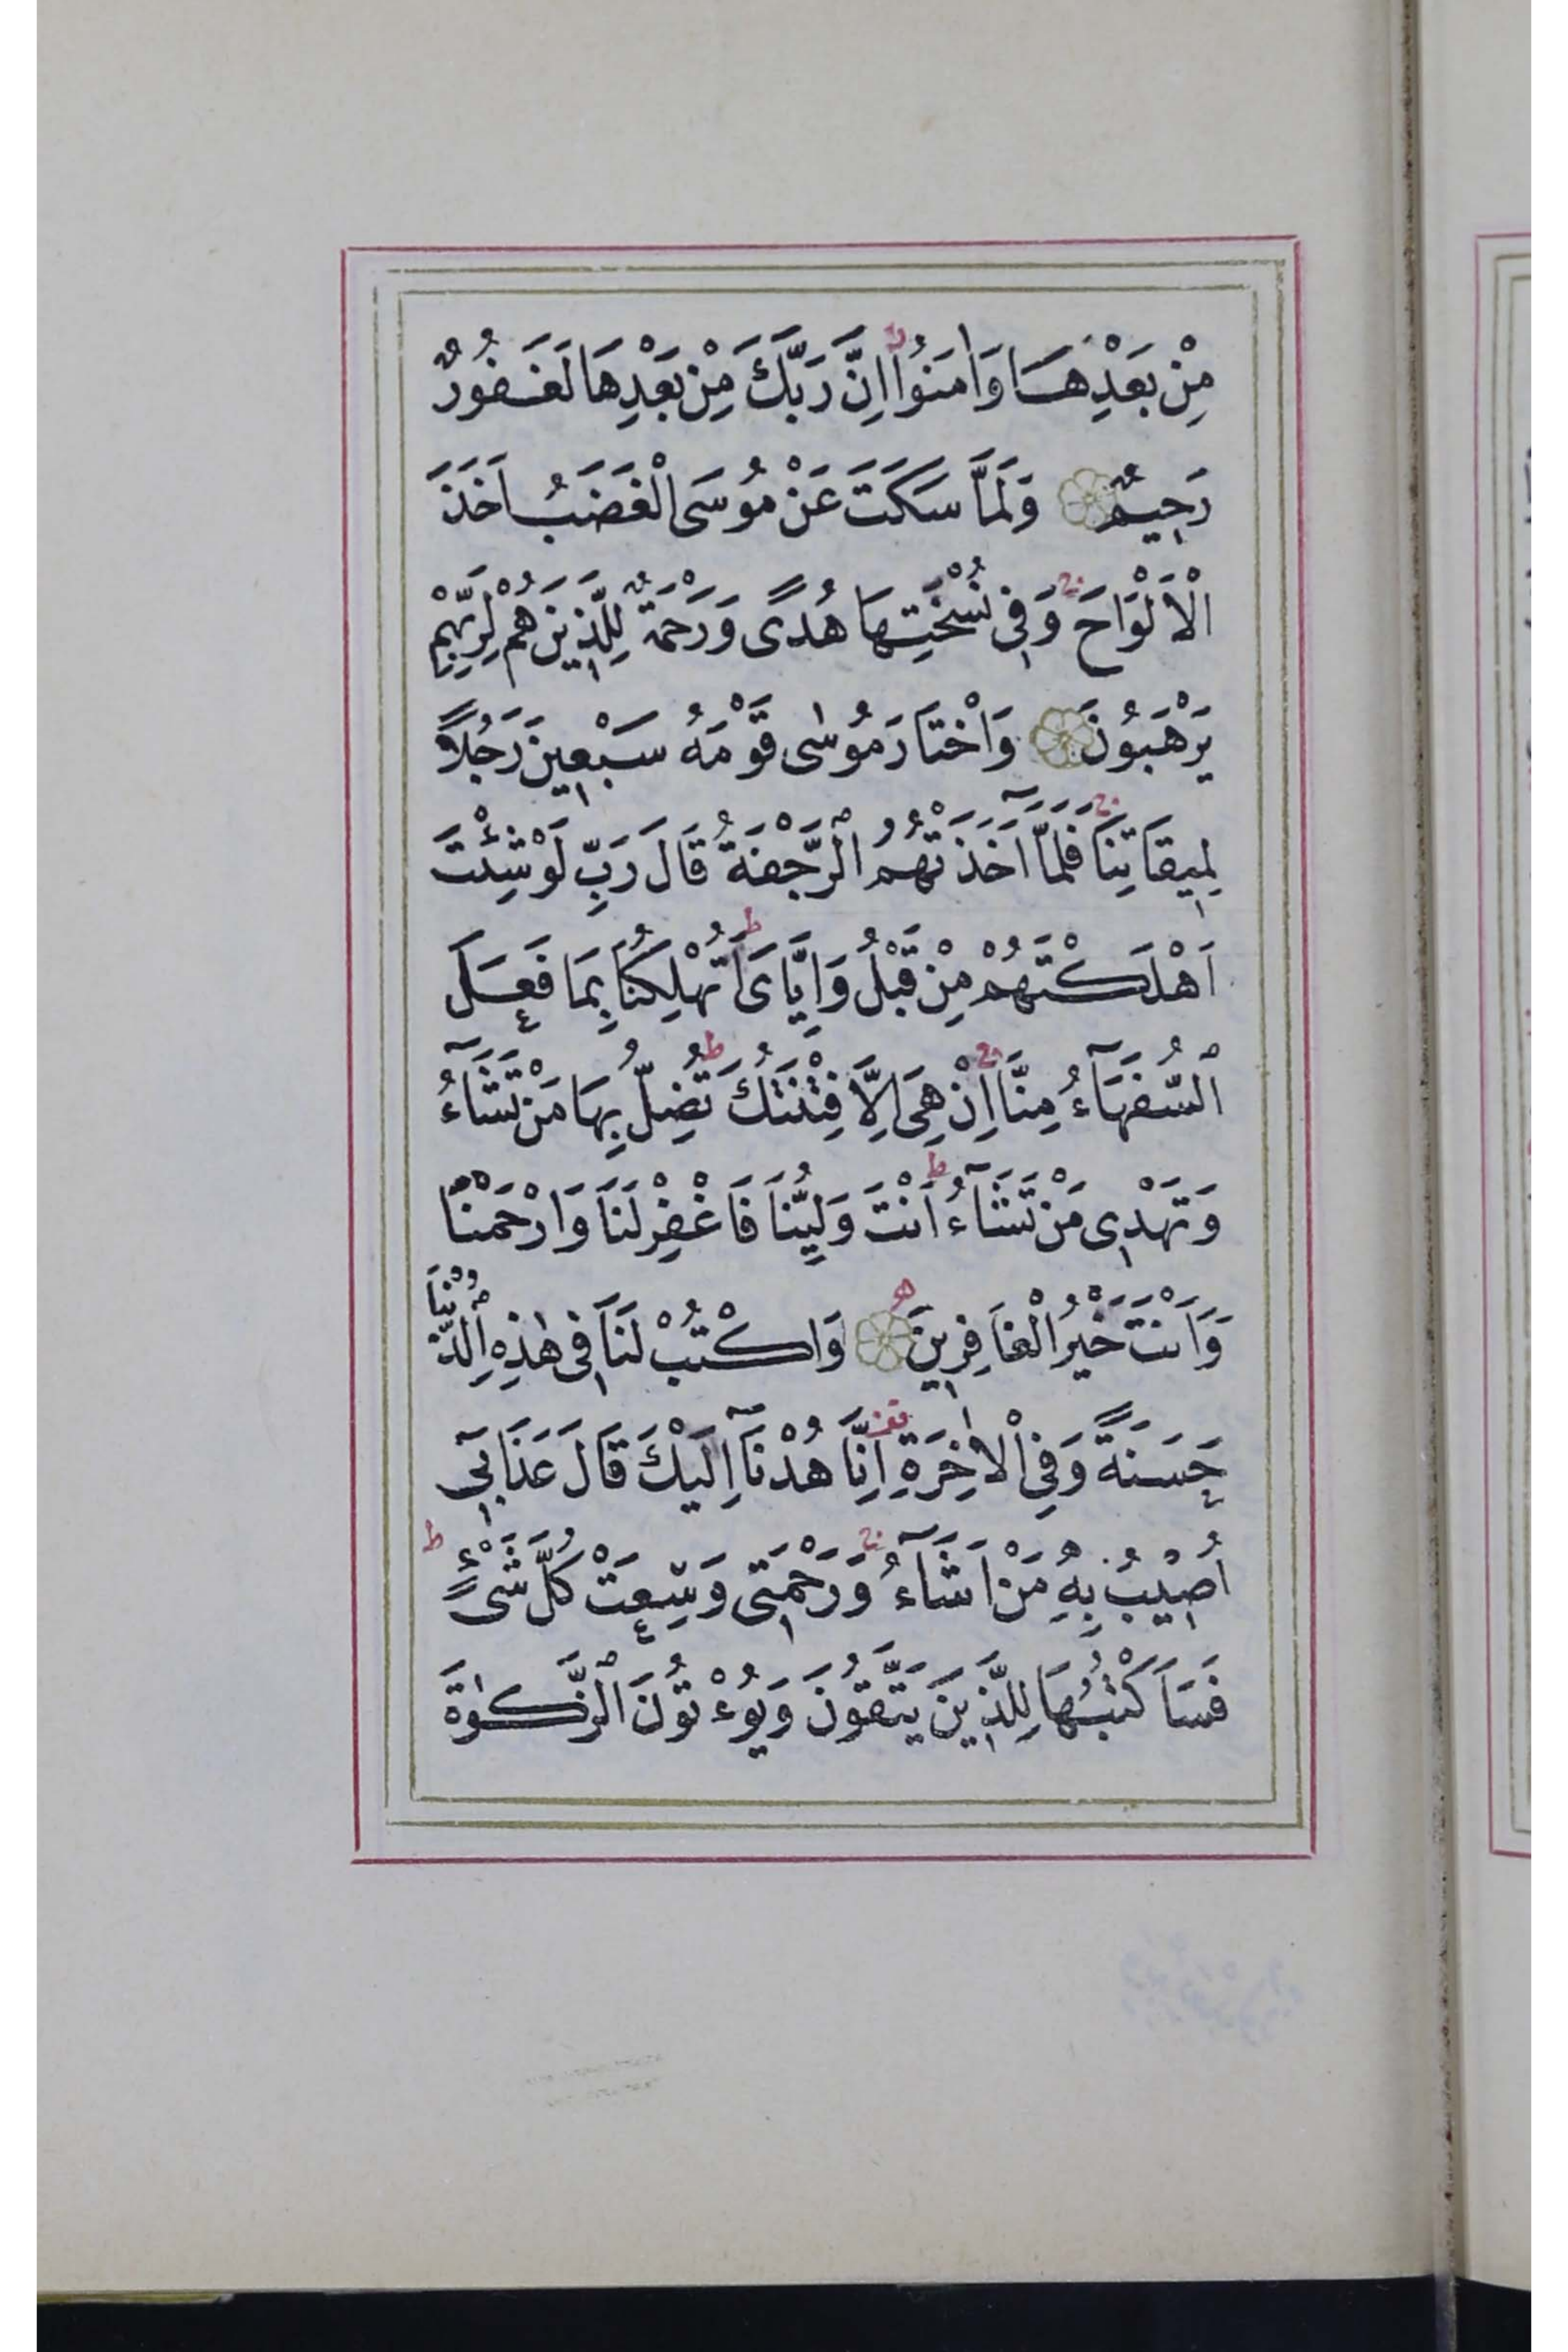 مِنْ بَعْدِهَا وَاٰمَنُوا اِنَّ رَبَّكَ مِنْ بَعْدِهَا لَغَفُورٌ
رَحِيمٌ وَلَمَّا سَكَتَ عَنْ مُوسَى الْغَضَبُ اَخَذَ
الْاَلْوَاحَ وَفِي نُسْخَتِهَا هُدًى وَرَحْمَةٌ لِلَّذِينَ هُمْ لِرَبِّهِمْ
يَرْهَبُونَ وَاخْتَارَ مُوسٰى قَوْمَهُ سَبْعِينَ رَجُلًا
لِمِيقَاتِنَا فَلَمَّا اَخَذَتْهُمُ الرَّجْفَةُ قَالَ رَبِّ لَوْ شِئْتَ
اَهْلَكْتَهُمْ مِنْ قَبْلُ وَاِيَّايَ اَتُهْلِكُنَا بِمَا فَعَلَ
السُّفَهَاۤءُ مِنَّا اِنْ هِيَ اِلَّا فِتْنَتُكَ تُضِلُّ بِهَا مَنْ تَشَاۤءُ
وَتَهْدِي مَنْ تَشَاۤءُ اَنْتَ وَلِيُّنَا فَاغْفِرْ لَنَا وَارْحَمْنَا
وَاَنْتَ خَيْرُ الْغَافِرِينَ وَاكْتُبْ لَنَا فِي هٰذِهِ الدُّنْيَا
حَسَنَةً وَفِي الْاٰخِرَةِ اِنَّا هُدْنَاۤ اِلَيْكَ قَالَ عَذَابِيۤ
اُصِيبُ بِهِ مَنْ اَشَاۤءُ وَرَحْمَتِي وَسِعَتْ كُلَّ شَيْءٍ
فَسَاَكْتُبُهَا لِلَّذِينَ يَتَّقُونَ وَيُؤْتُونَ الزَّكٰوةَ